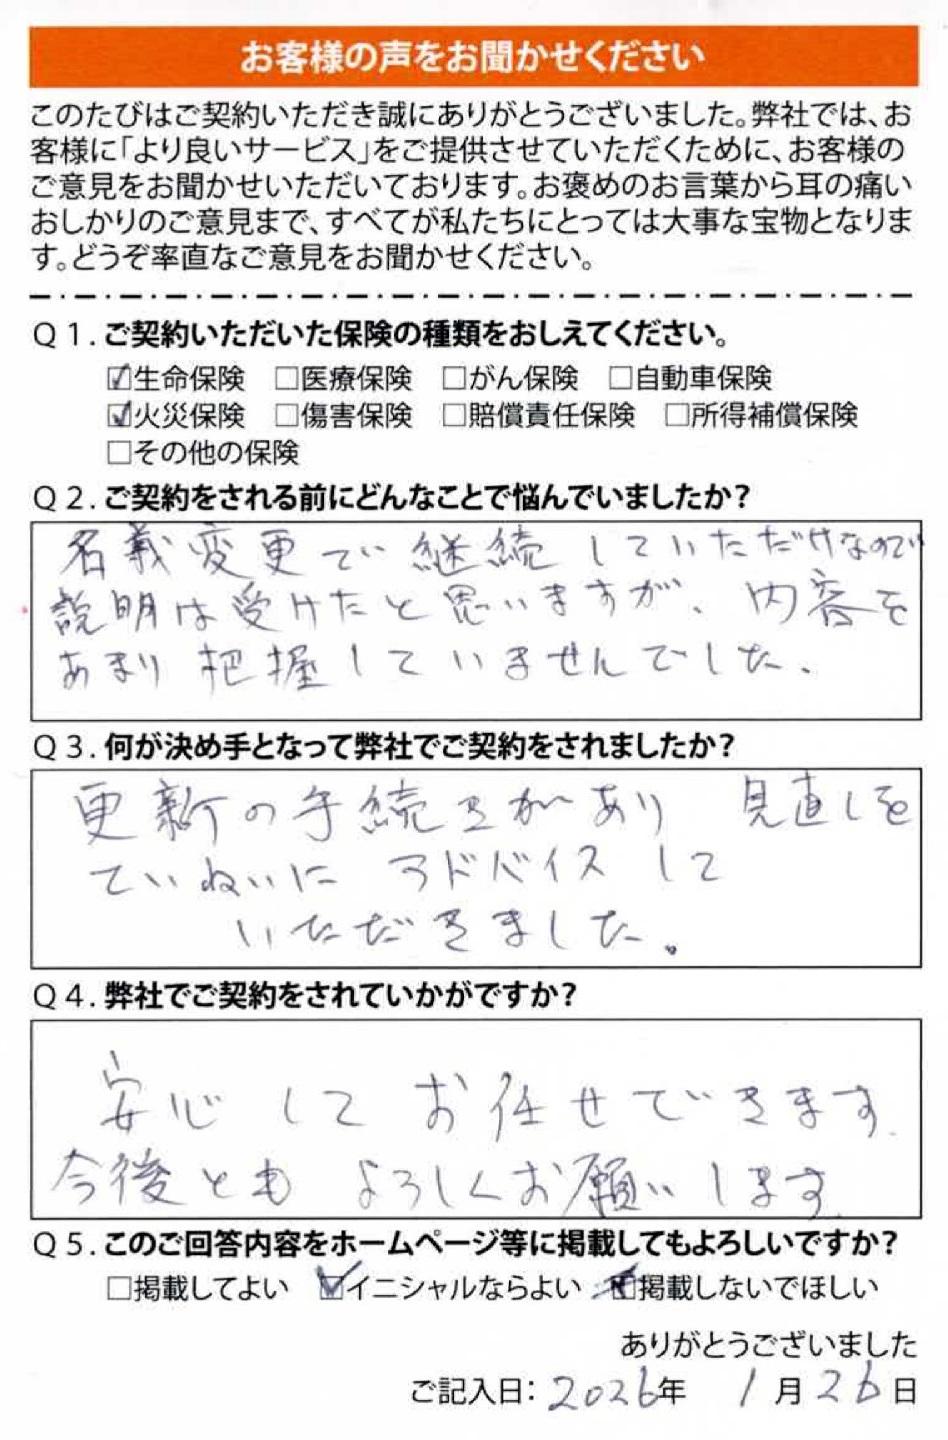 お客様の声をお聞かせください
このたびはご契約いただき誠にありがとうございました。弊社では、お
客様に「より良いサービス」をご提供させていただくために、お客様の
ご意見をお聞かせいただいております。お褒めのお言葉から耳の痛い
おしかりのご意見まで、すべてが私たちにとっては大事な宝物となりま
す。どうぞ率直なご意見をお聞かせください。
Q1.ご契約いただいた保険の種類をおしえてください。
☑生命保険 □医療保険 □がん保険 □自動車保険
☑火災保険 □傷害保険 □賠償責任保険 □所得補償保険
□その他の保険
Q2.ご契約をされる前にどんなことで悩んでいましたか?
名義変更で継続していただけなので
説明は受けたと思いますが、内容を
あまり把握していませんでした、
Q3.何が決め手となって弊社でご契約をされましたか?
更新の手続きがあり 見直しを
ていねいに アドバイスして
いただきました。
Q4.弊社でご契約をされていかがですか?
安心してお任せできます.
今後ともよろしくお願いします.
Q5.このご回答内容をホームページ等に掲載してもよろしいですか?
□掲載してよい ☑イニシャルならよい ☑掲載しないでほしい
ありがとうございました
ご記入日:2026年 1月26日